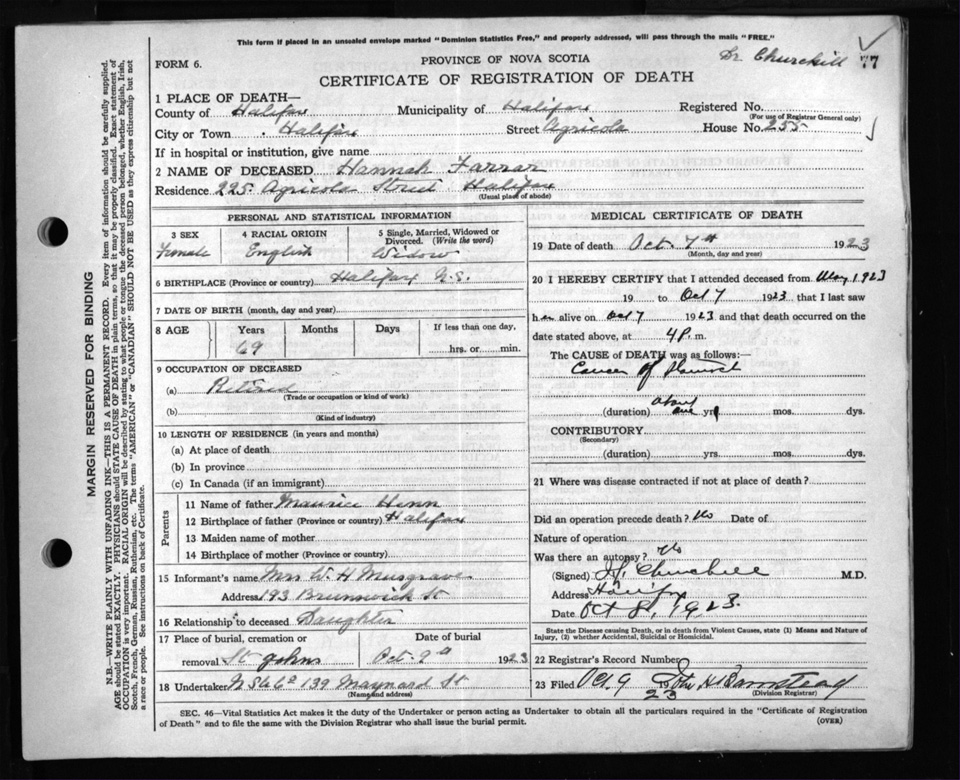 This form if placed in an unsealed envelope marked "Dominion Statistics Free," and properly addressed, will pass through the mails "FREE."
Dr Churchill 77
FORM 6.
PROVINCE OF NOVA SCOTIA
CERTIFICATE OF REGISTRATION OF DEATH
1 PLACE OF DEATH—
County of Halifax Municipality of Halifax Registered No.
(For use of Registrar General only)
City or Town Halifax Street Agricola House No. 255
If in hospital or institution, give name
2 NAME OF DECEASED Hannah Farrar
Residence 225 Agricola Street Halifax
(Usual place of abode)
PERSONAL AND STATISTICAL INFORMATION
3 SEX 4 RACIAL ORIGIN 5 Single, Married, Widowed or Divorced. (Write the word)
Female English Widow
6 BIRTHPLACE (Province or country) Halifax N.S.
7 DATE OF BIRTH (month, day and year)
8 AGE Years Months Days If less than one day,
69 hrs. or min.
9 OCCUPATION OF DECEASED
(a) Retired
(Trade or occupation or kind of work)
(b)
(Kind of industry)
10 LENGTH OF RESIDENCE (in years and months)
(a) At place of death
(b) In province
(c) In Canada (if an immigrant)
Parents
11 Name of father Maurice
12 Birthplace of father (Province or country) Halifax
13 Maiden name of mother
14 Birthplace of mother (Province or country)
15 Informant's name Mrs W. H Musgrave
Address 193 Brunswick St
16 Relationship to deceased Daughter
17 Place of burial, cremation or Date of burial
removal St Johns Oct. 9th 1923
18 Undertaker 139 Maynard St
(Name and address)
MEDICAL CERTIFICATE OF DEATH
19 Date of death Oct. 7th 1923
(Month, day and year)
20 I HEREBY CERTIFY that I attended deceased from May 1923
19 to Oct 7 1923 that I last saw
h er alive on Oct 7 1923 and that death occurred on the
date stated above, at 4 P. m.
The CAUSE of DEATH was as follows:—
Cancer of Stomach
about
(duration) one yrs mos. dys.
CONTRIBUTORY
(Secondary)
(duration) yrs. mos. dys.
21 Where was disease contracted if not at place of death?
Did an operation precede death? No Date of
Nature of operation
Was there an autopsy? No
(Signed) Churchill M.D.
Address Halifax
Date Oct 8, 1923.
State the Disease causing Death, or in death from Violent Causes, state (1) Means and Nature of
Injury, (2) whether Accidental, Suicidal or Homicidal.
22 Registrar's Record Number
23 Filed Oct. 9 1923 John H Barnstead
(Division Registrar)
SEC. 46—Vital Statistics Act makes it the duty of the Undertaker or person acting as Undertaker to obtain all the particulars required in the "Certificate of Registration
of Death" and to file the same with the Division Registrar who shall issue the burial permit.
(OVER)
MARGIN RESERVED FOR BINDING
N.B.—WRITE PLAINLY WITH UNFADING INK—THIS IS A PERMANENT RECORD. Every item of information should be carefully supplied.
AGE should be stated EXACTLY. PHYSICIANS should STATE CAUSE OF DEATH in plain terms, so that it may be properly classified. Exact statement of
OCCUPATION is very important. RACIAL ORIGIN will be described by stating to what people or tongue the deceased person belonged, whether English, Irish,
Scotch, French, German, Russian, Ruthenian, etc. The terms "AMERICAN" or "CANADIAN" SHOULD NOT BE USED as they express citizenship but not
a race or people. See instructions on back of Certificate.